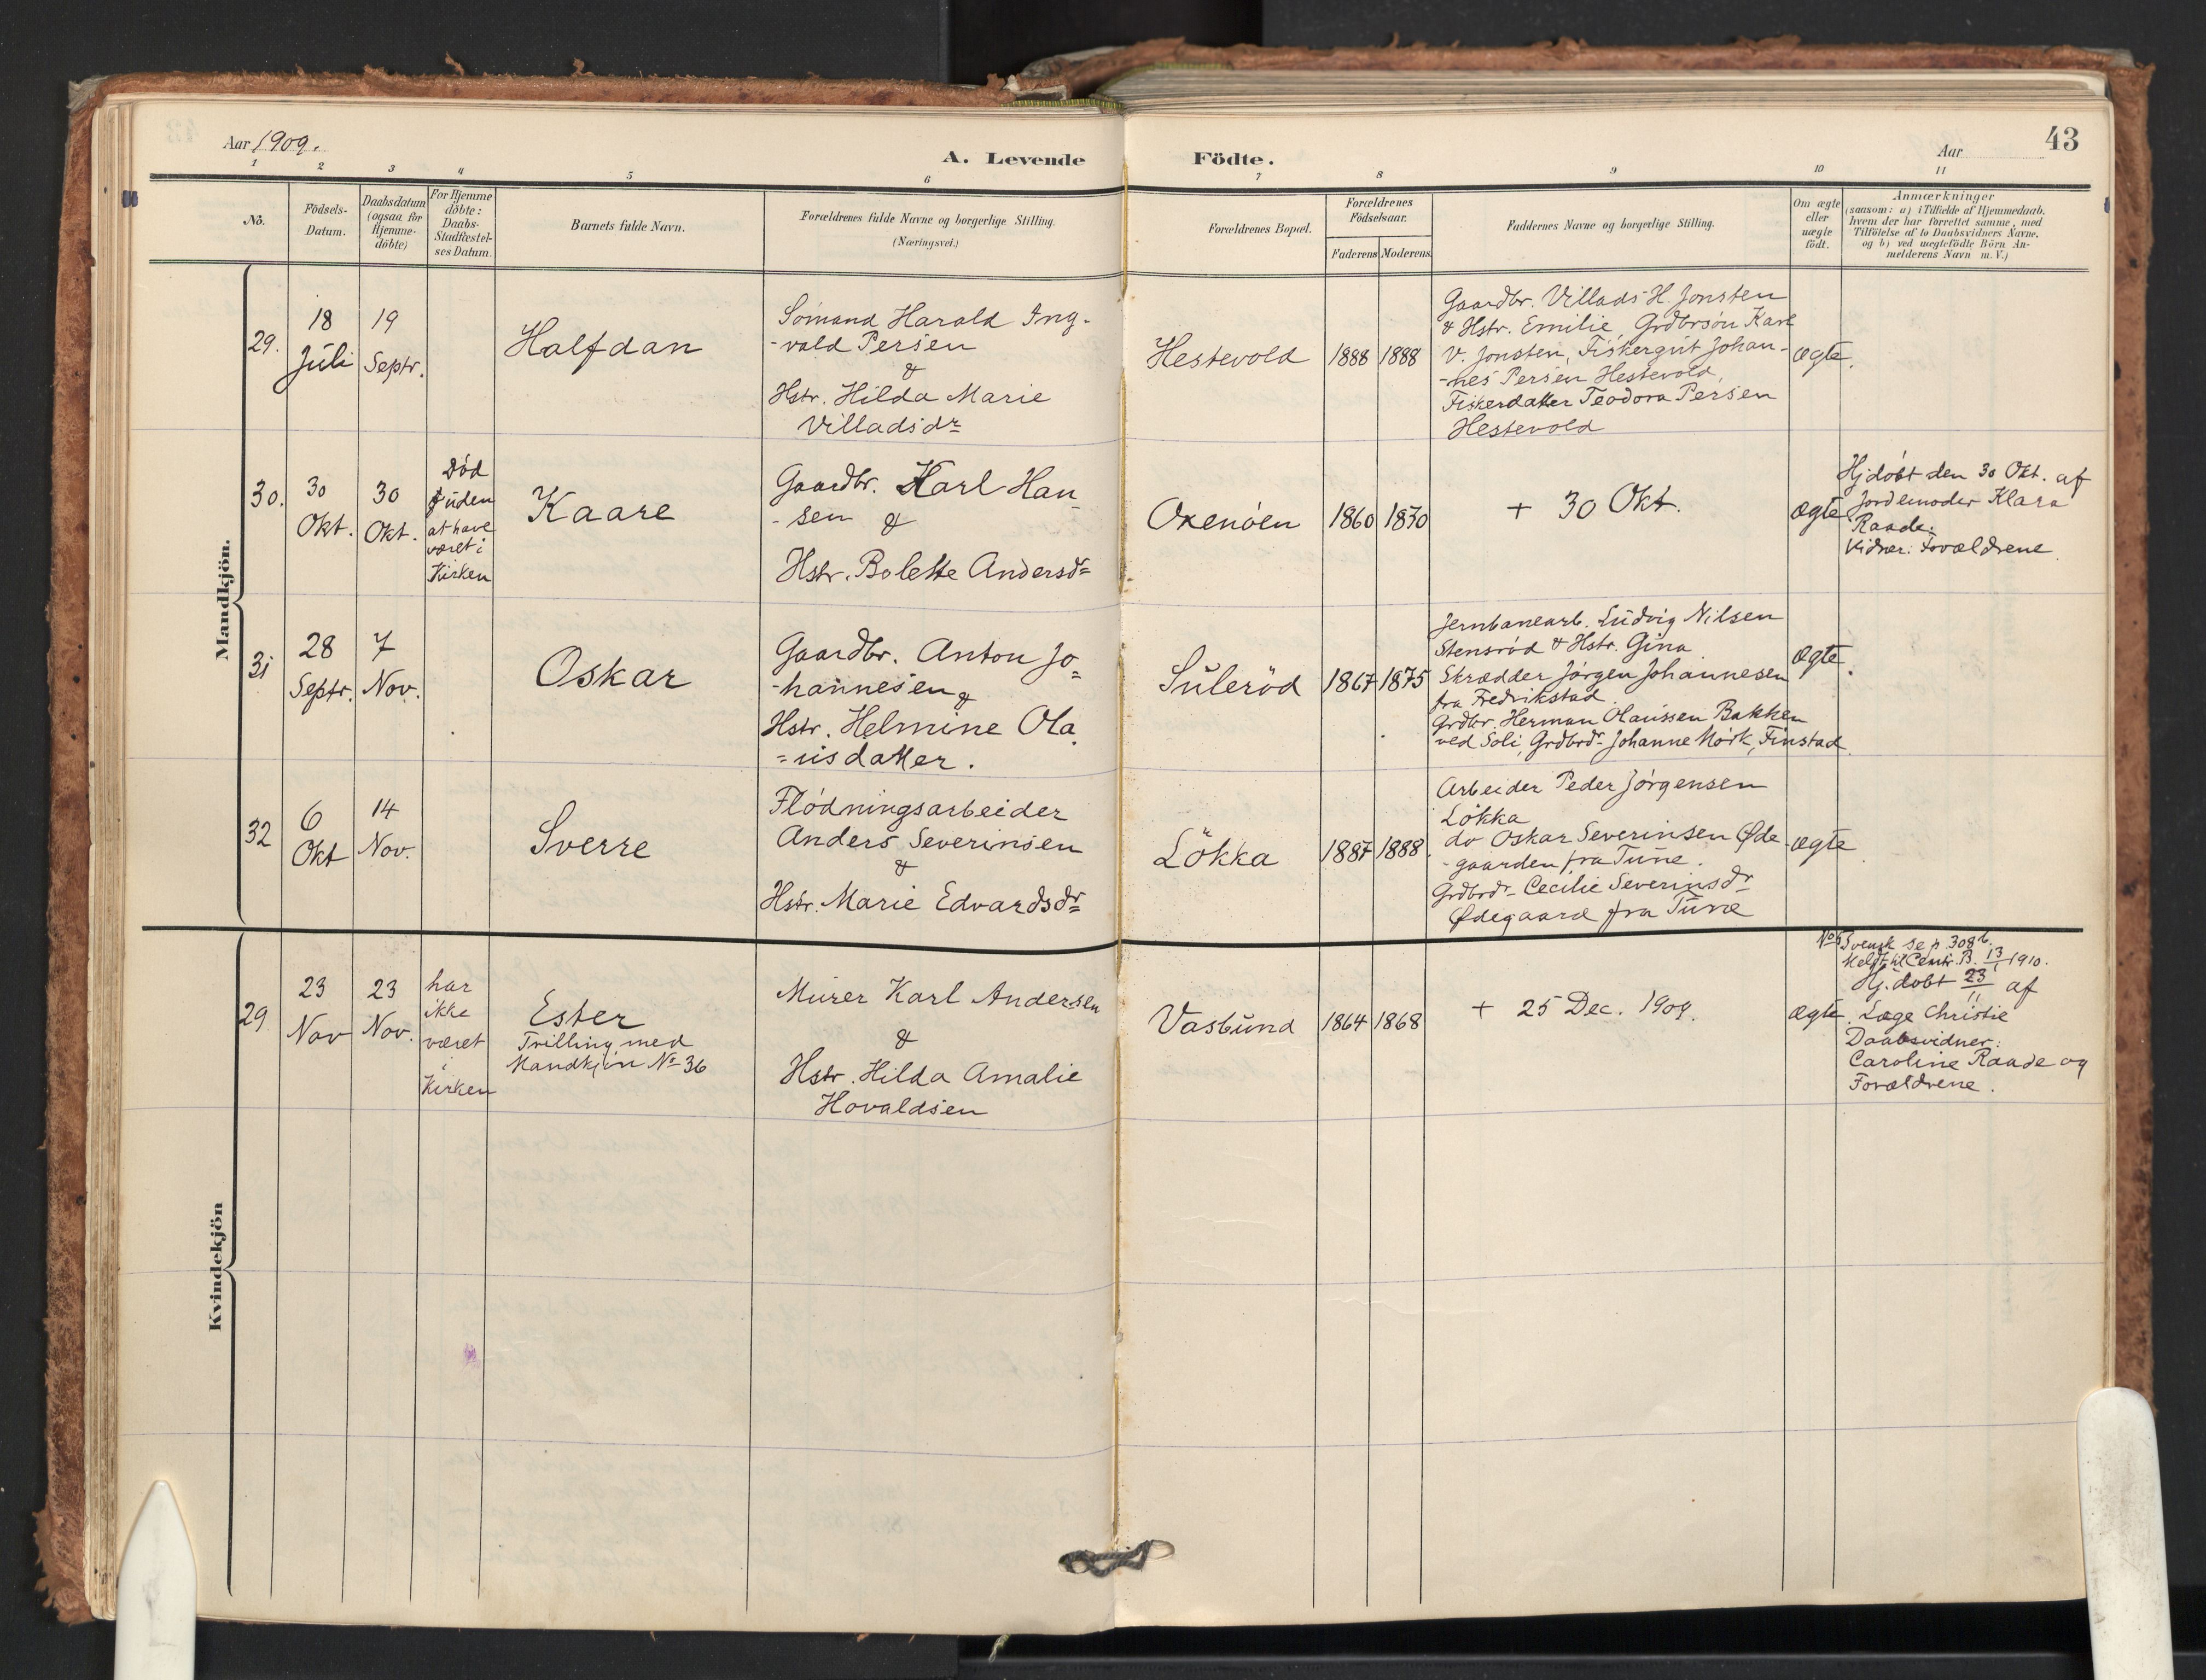 Aar 1909.
A. Levende Födte.
Aar
43
1 2 3 4 5 6 7 8 9 10 11
Nö.
Födsels-Datum.
Daabsdatum (ogsaa for Hjemme-döbte)
For Hjemme döbte: Daabs-Stadfæstel-ses Datum.
Barnets fulde Navn.
Forældrenes fulde Navne og borgerlige Stilling.
(Næringsvei.)
Forældrenes Bopæl.
Forældrenes Födselsaar.
Faderens Moderens
Faddernes Navne og borgerlige Stilling.
Om ægte eller uægte födt.
Anmærkninger
(saasom: a) i Tilfælde af Hjemmedaab,
hvem der har forrettet samme, med
Tilföielse af to Daabsvidners Navne.
og b) ved uægtefödte Börn An-
melderens Navn m. V.)
Mandkjön.
29.
18
Juli
19
Septr.
Halfdan
Sömand Harald Ing-
-vald Persen
&
Hstr. Hilda Marie
Villadsdr
Hestevold
1888
1888
Gaardbr. Villads H. Jonsten
& Hstr. Emilie, Grdbrsön Karl
V. Jonsten, Fiskergut Johan-
-nes Persen Hestevold,
Fiskerdatter Teodora Persen
Hestevold
ægte.
30.
30
Okt.
30
Okt.
Död
uden
at have
været i
Kirken
Kaare
Gaardbr. Karl Han-
-sen &
Hstr. Bolette Andersdr
Oxenöen
1860
1870
+ 30 Okt.
ægte
Hjdöbt den 30 Okt. af
Jordemoder Klara
Raade.
Vidner: Forældrene.
31
28
Septr.
7
Nov.
Oskar
Gaardbr. Anton Jo-
-hannesen &
Hstr. Helmine Ola
=usdatter.
Suleröd
1867
1875
Jernbanearb. Ludvig Nilsen
Stensröd & Hstr. Gina
Skrædder Jörgen Johannesen
fra Fredrikstad.
Grdbr. Herman Olaussen Bakken
ved Soli, Grdbrdr Johanne Mörk, Finstad.
ægte.
32
6
Okt
14
Nov.
Sverre
Flödningsarbeider
Anders Severinsen
&
Hstr. Marie Edvardsdr
Lökka
1887
1888.
Arbeider Peder Jörgensen
Lökka
do Oskar Severinsen Øde-
-gaarden fra Tune.
Grdbrdr Cecilie Severinsdr
Ødegaard fra Tune
ægte
Kvindekjön
29
23
Nov
23
Nov.
har
ikke
været
i
Kirken
Ester
Trilling med
Mandkjön No 36
Murer Karl Andersen
&
Hstr. Hilda Amalie
Hovaldsen
Vasbund
1864
1868
+ 25 Dec. 1909.
ægte.
Svensk
Meldt til Centr. B. 13/1 1910.
Hj. döbt 23/11 af
Læge Christie
Daabsvidner:
Caroline Raade og
Forældrene.